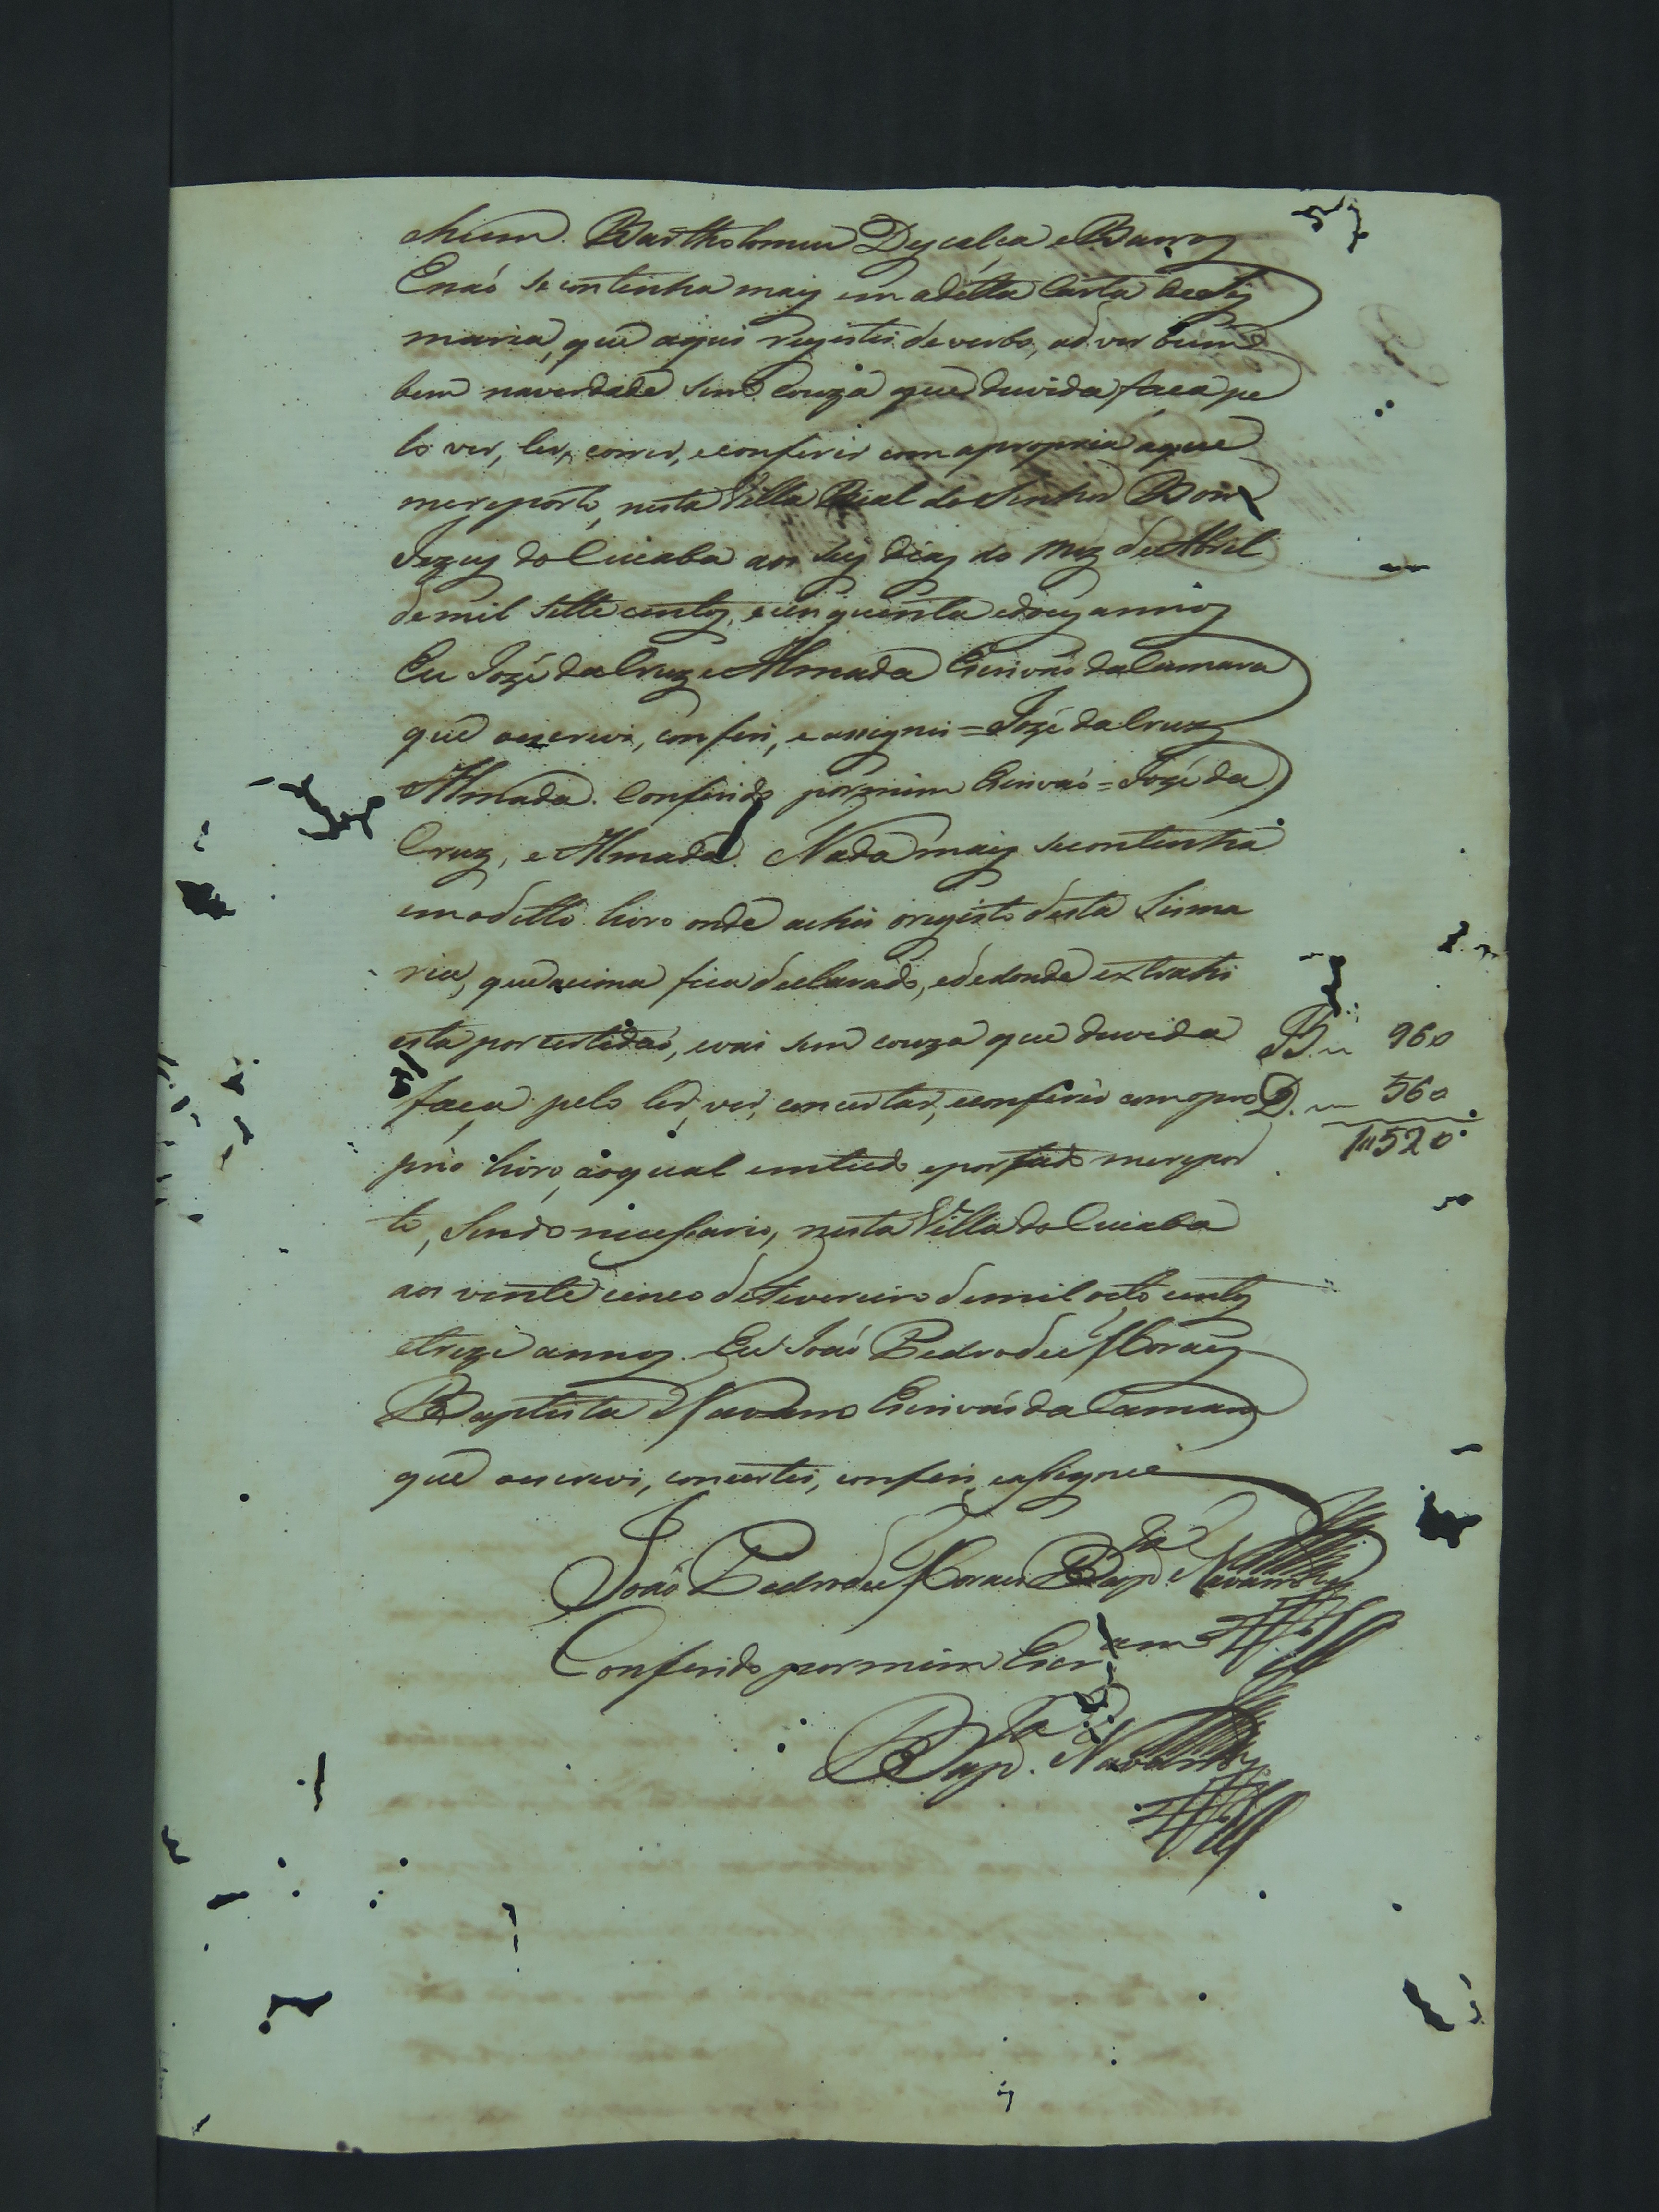 Bartholomeu Descalça e Barros
Enaó se continha mais em adétta Carta de Sis
maria, que aqui registei de verbo, ad verbum
bem naverdade sem couza que duvida faça pe
lo ver, ler, correr, econferir com apropria aque
mereporto, nesta Villa Real do Senhor Bom
Jezus do Cuiaba aos seis dias do mez de Abril
demil sette centos, ecinquenta edous annos
Eu Jozé da Cruz e Almada Escrivaó da Camara
que oescrevi, conferi, e assignei = Jozé da Cruz
Almada. Conferido por mim Escrivaó = Jozé da
Cruz, e Almada. Nada mais secontinha
em oditto livro onde achei oregisto desta Sisma
ria, que acima fica declarado, ededonde extrahi
esta por certidaó, evai sem couza que duvida
faça pelo ler, ver, concertar, econferir com opro
prio livro, aoqual emtudo eportudo merepor
to, sendo necessario, nesta Villa do Cuiaba
aos vinte cinco de Fevereiro demil oito centos
etreze annos. Eu Joaó Pedro de Moraes
Baptista Navarro Escrivaó da Camara
que oescrevi, concertei, conferi, eassignei
R. 960
D. 560
1"520
Joaó Pedro de Moraes Bap.ta Navarro
Conferido por mim Escr.am
Bap.ta Navarro